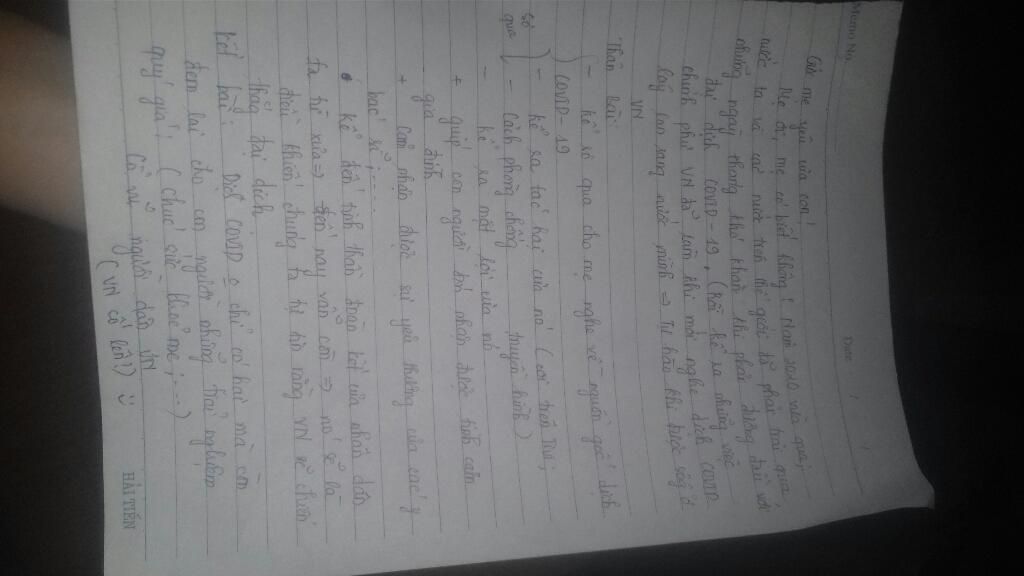 Memo No.
Date / /
Gửi mẹ yêu của con!
Mẹ ơi, mẹ có biết không! Năm 2020 vừa qua,
nước ta và cả nước trên thế giới đã phải trải qua
những ngày tháng khó khăn khi phải đương đầu với
đại dịch COVID-19. (Rồi kể ra những việc
chính phủ VN đã làm khi mới nghe dịch COVID
lây lan sang nước mình => Tự hào khi được sống ở
VN
Thân bài:
- kể sơ qua cho mẹ nghe về nguồn gốc dịch
COVID-19
Sơ qua
- kể ra tác hại của nó (coi trên Tivi,
- Cách phòng chống truyền hình)
- kể ra mặt lợi của nó
+ giúp con người cảm nhận được tình cảm
gia đình
+ Cảm nhận được sự yêu thương của các y
bác sĩ;.....
• kể đến tinh thần đoàn kết của nhân dân
ta từ xưa => đến nay vẫn còn => nó sẽ là
điều khiến chúng ta tự tin rằng VN sẽ chiến
thắng đại dịch.
kết bài: Dịch COVID o chỉ có hại mà còn
đem lại cho con người những trải nghiệm
quý giá! (chúc sức khoẻ mẹ;...)
Cổ vũ người dân VN
(VN cố lên!) :)
HẢI TIẾN